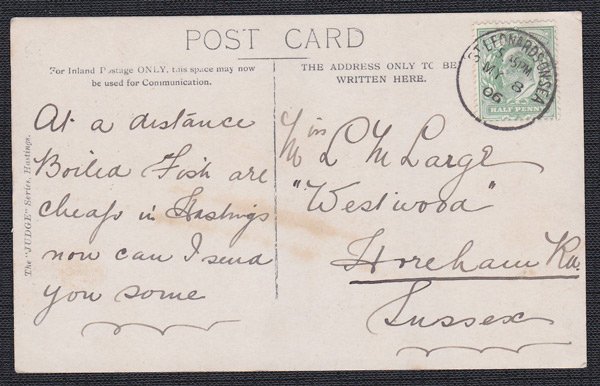 POST CARD
For Inland Postage ONLY, this space may now
be used for Communication.
THE ADDRESS ONLY TO BE
WRITTEN HERE.
ST LEONARDS ON SEA
5 PM
MY 8
06
HALF PENNY
At a distance
Boiled Fish are
cheap in Hastings
now can I send
you some
L M Large
"Westwood"
Horeham Rd.
Sussex
The "JUDGE" Series, Hastings.